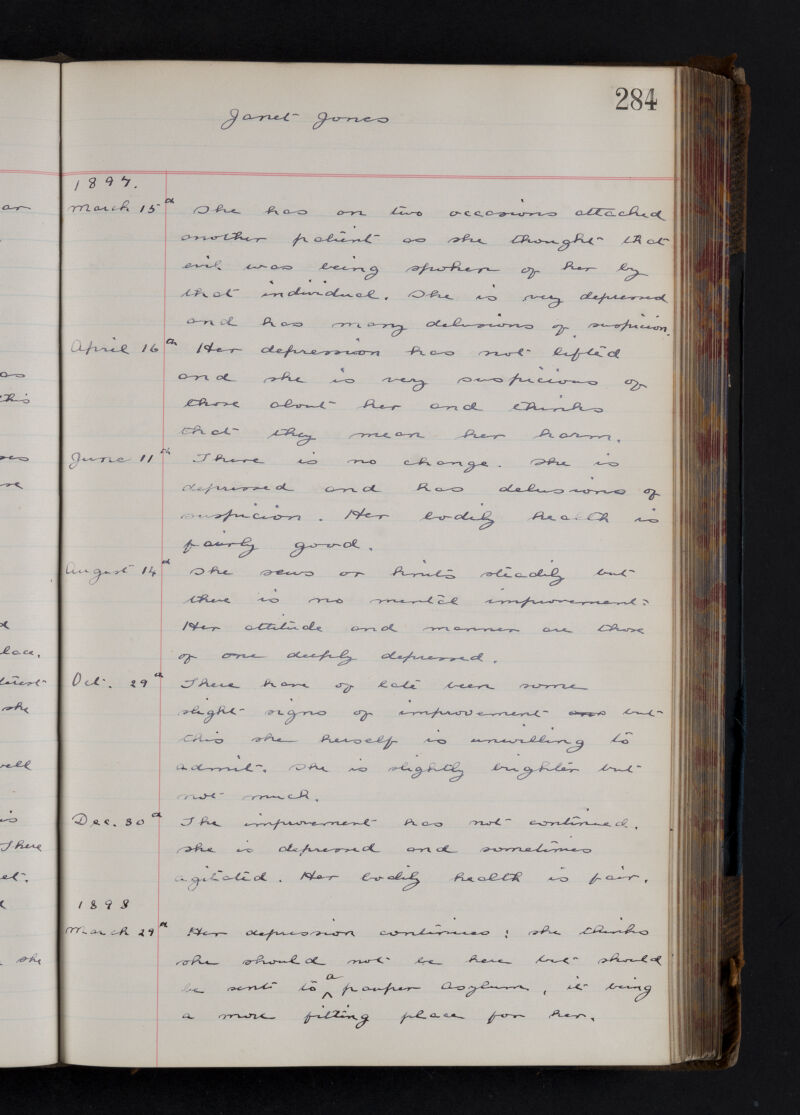 284
Janet Jones
1897.
March 15th She has on two occasions attacked
another patient as she thought that
evil was being spoken of her by
that individual. She is very depressed
and has many delusions of suspicion.
April 16th Her depression has not lifted
and she is very suspicious of
those about her and thinks
that they mean her harm.
June 11th There is no change. She is
depressed and has delusions of
suspicion. Her bodily health is
fairly good.
August 14th She sews or knits steadily but
there is no mental improvement:
Her attitude and manner are those
of one deeply depressed.
Oct. 29th There have of late been some
slight signs of improvement but
this she herself is unwilling to
admit. She is slightly brighter but
not much.
Dec. 30th The improvement has not continued.
she is depressed and sometimes
agitated. Her bodily health is fair.
1898
March 29th Her depression continues: she thinks
she should not be here but should
be sent to a pauper asylum, it being
a more fitting place for her.